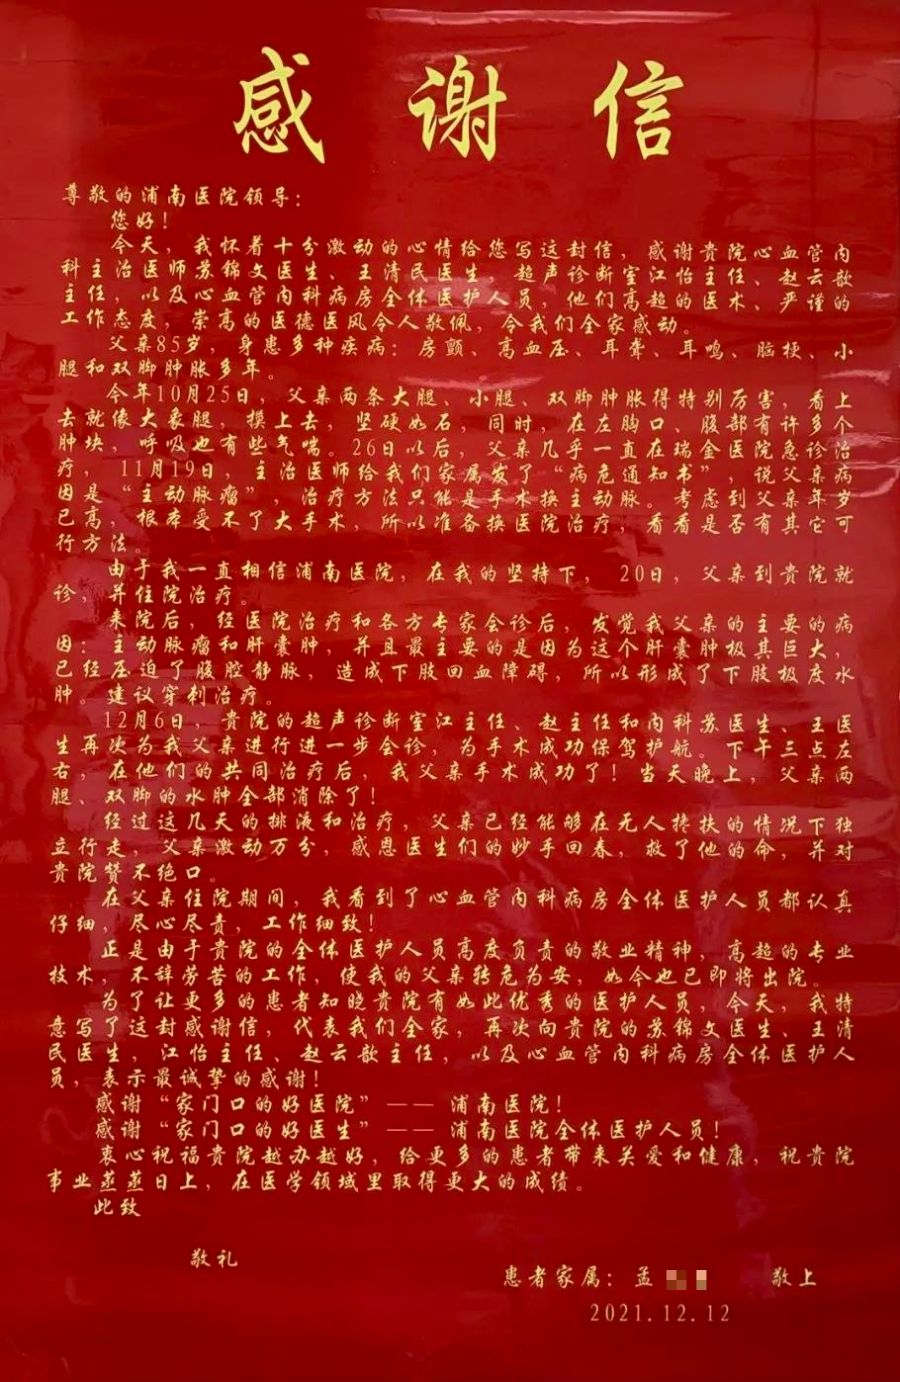 感谢信
尊敬的浦南医院领导：
您好！
今天，我怀着十分激动的心情给您写这封信，感谢贵院心血管内
科主治医师苏锦文医生、王清民医生，超声诊断室江怡主任、赵云歌
主任，以及心血管内科病房全体医护人员，他们高超的医术、严谨的
工作态度，崇高的医德医风令人敬佩，令我们全家感动。
父亲85岁，身患多种疾病：房颤、高血压、耳聋、耳鸣、脑梗、小
腿和双脚肿胀多年。
今年10月25日，父亲两条大腿、小腿、双脚肿胀得特别厉害，看上
去就像大象腿，摸上去，坚硬如石，同时，在左胸口、腹部有许多个
肿块，呼吸也有些气喘。26日以后，父亲几乎一直在瑞金医院急诊治
疗，11月19日，主治医师给我们家属发了“病危通知书”，说父亲病
因是“主动脉瘤”，治疗方法只能是手术换主动脉。考虑到父亲年岁
已高，根本受不了大手术，所以准备换医院治疗，看看是否有其它可
行方法。
由于我一直相信浦南医院，在我的坚持下，20日，父亲到贵院就
诊，并住院治疗。
来院后，经医院治疗和各方专家会诊后，发觉我父亲的主要的病
因：主动脉瘤和肝囊肿，并且最主要的是因为这个肝囊肿极其巨大，
已经压迫了腹腔静脉，造成下肢回血障碍，所以形成了下肢极度水
肿。建议穿刺治疗。
12月6日，贵院的超声诊断室江主任、赵主任和内科苏医生、王医
生再次为我父亲进行进一步会诊，为手术成功保驾护航。下午三点左
右，在他们的共同治疗后，我父亲手术成功了！当天晚上，父亲两
腿、双脚的水肿全部消除了！
经过这几天的排液和治疗，父亲已经能够在无人搀扶的情况下独
立行走，父亲激动万分，感恩医生们的妙手回春，救了他的命，并对
贵院赞不绝口。
在父亲住院期间，我看到了心血管内科病房全体医护人员都认真
仔细，尽心尽责，工作细致！
正是由于贵院的全体医护人员高度负责的敬业精神，高超的专业
技术，不辞劳苦的工作，使我的父亲转危为安，如今也已即将出院。
为了让更多的患者知晓贵院有如此优秀的医护人员，今天，我特
意写了这封感谢信，代表我们全家，再次向贵院的苏锦文医生、王清
民医生，江怡主任、赵云歌主任，以及心血管内科病房全体医护人
员，表示最诚挚的感谢！
感谢“家门口的好医院”——浦南医院！
感谢“家门口的好医生”——浦南医院全体医护人员！
衷心祝福贵院越办越好，给更多的患者带来关爱和健康，祝贵院
事业蒸蒸日上，在医学领域里取得更大的成绩。
此致
敬礼
患者家属：孟 敬上
2021.12.12